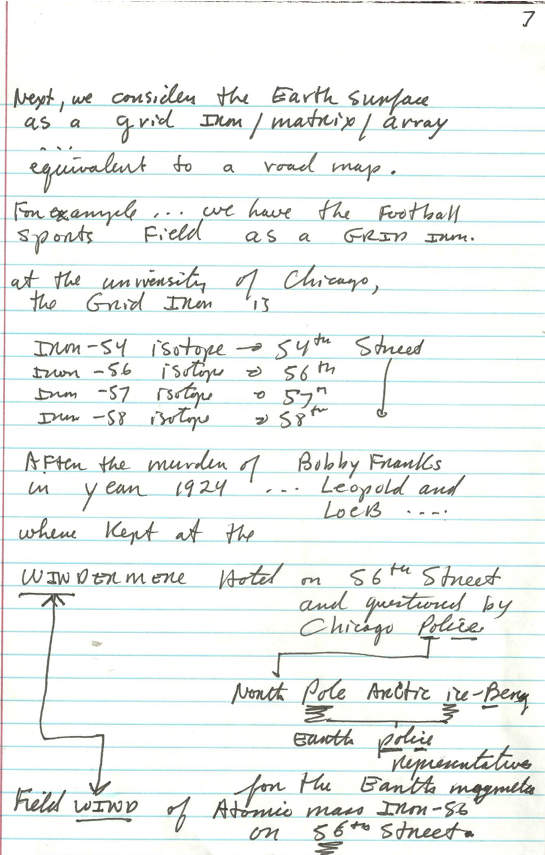 7
Next, we consider the Earth surface
as a grid Iron / matrix / array
...
equivalent to a road map.
For example ... we have the Football
sports Field as a GRID Iron.
at the university of Chicago,
the Grid Iron is
Iron-54 isotope → 54th Street
Iron-56 isotope → 56th
Iron-57 isotope → 57th
Iron-58 isotope → 58th
After the murder of Bobby Franks
in year 1924 ... Leopold and
Loeb ....
where Kept at the
WINDERMERE Hotel on 56th Street
and questioned by
Chicago Police
North Pole Arctic ice-Berg
Earth police
representative
for the Earths magnetic
Field WIND of Atomic mass Iron-56
on 56th Street.